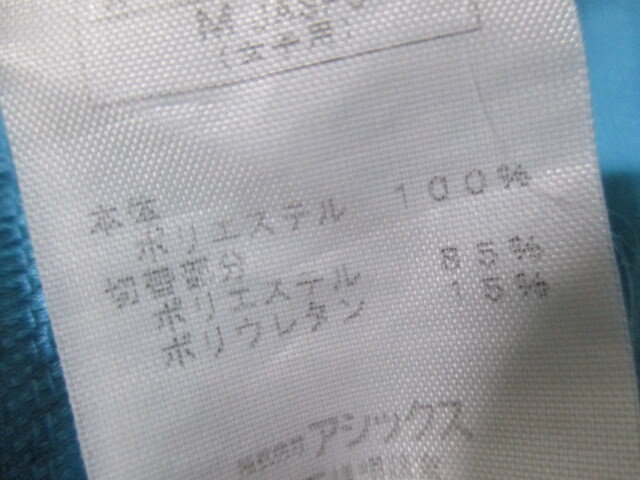 M JASPO
(女子用)
本体
ポリエステル 100%
切替部分
ポリエステル 85%
ポリウレタン 15%
株式会社アシックス